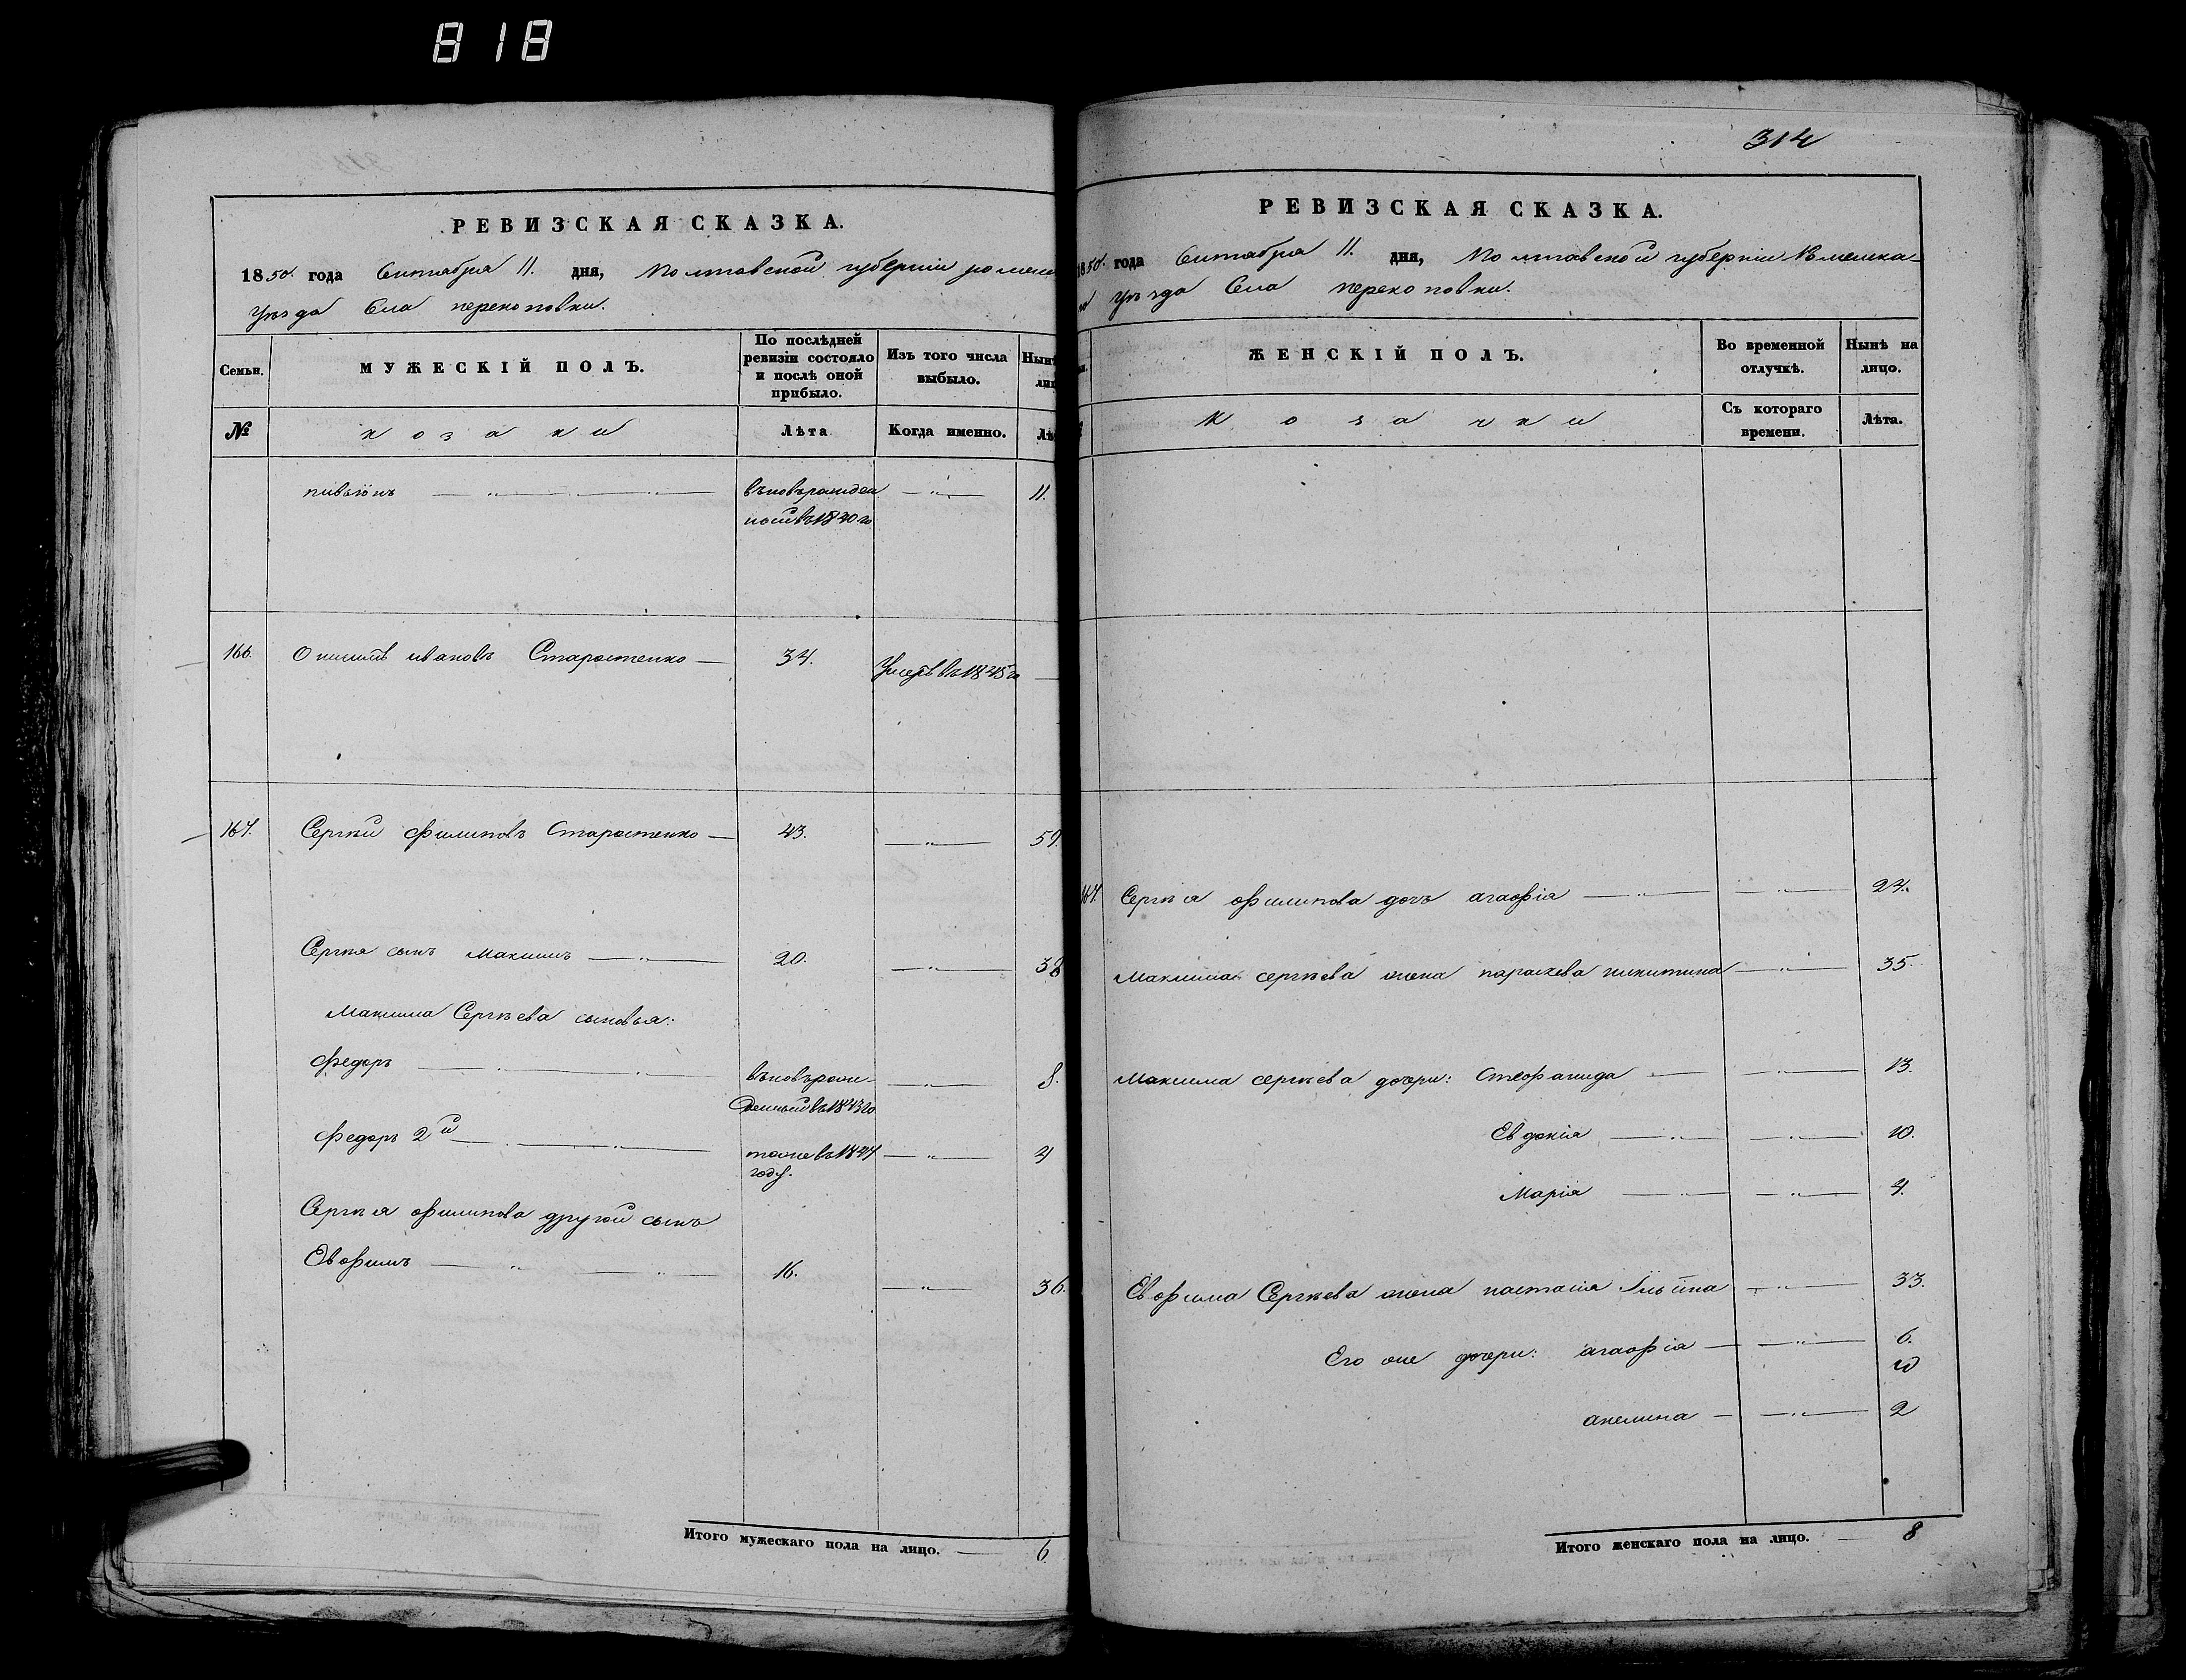 818
РЕВИЗСКАЯ СКАЗКА.
1850 года Сентября 11. дня, Полтавской губерніи
уѣзда Села перекоповки.
Семьи.
МУЖЕСКІЙ ПОЛЪ.
По послѣдней ревизіи состояло и послѣ оной прибыло.
Изъ того числа выбыло.
№
козаки
Лѣта
Когда именно.
11.
166.
Онисимъ ивановъ Старостенко
34.
Умеръ въ 1845 го
167.
Сергѣй филиповъ Старостенко
43.
59.
Сергѣя сынъ Максимъ
20.
38
Максима Сергѣева сыновья:
федоръ
8.
федоръ 2й
тоже въ 1847
году.
4
Сергѣя филипова другой сынъ
Евфимъ
16.
36.
Итого мужескаго пола на лицо.
6
314
РЕВИЗСКАЯ СКАЗКА.
1850 года Сентября 11. дня, Полтавской губерніи
уѣзда Села перекоповки.
ЖЕНСКІЙ ПОЛЪ.
Во временной отлучкѣ.
Нынѣ на лицо.
Козачки
Съ котораго времени.
Лѣта.
167.
Сергѣя филипова дочь агафія
24.
Максима сергѣева жена параскева никитина
35.
Максима сергѣева дочери: Стефанида
13.
Евдокія
10.
Марія
4.
Евфима Сергѣева жена настасія Ильина
33.
Его же дочери: агафія
6.
акелина
2
Итого женскаго пола на лицо.
8